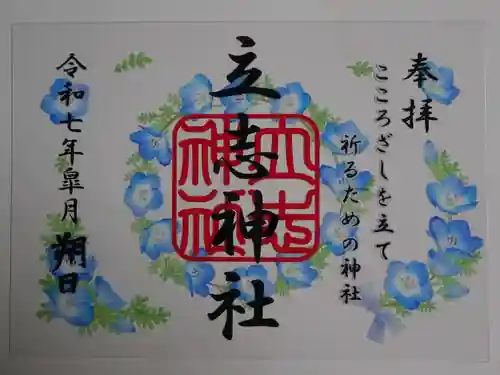 奉拝
こころざしを立て
祈るための神社
立志神社
立志神社
令和七年皐月朔日